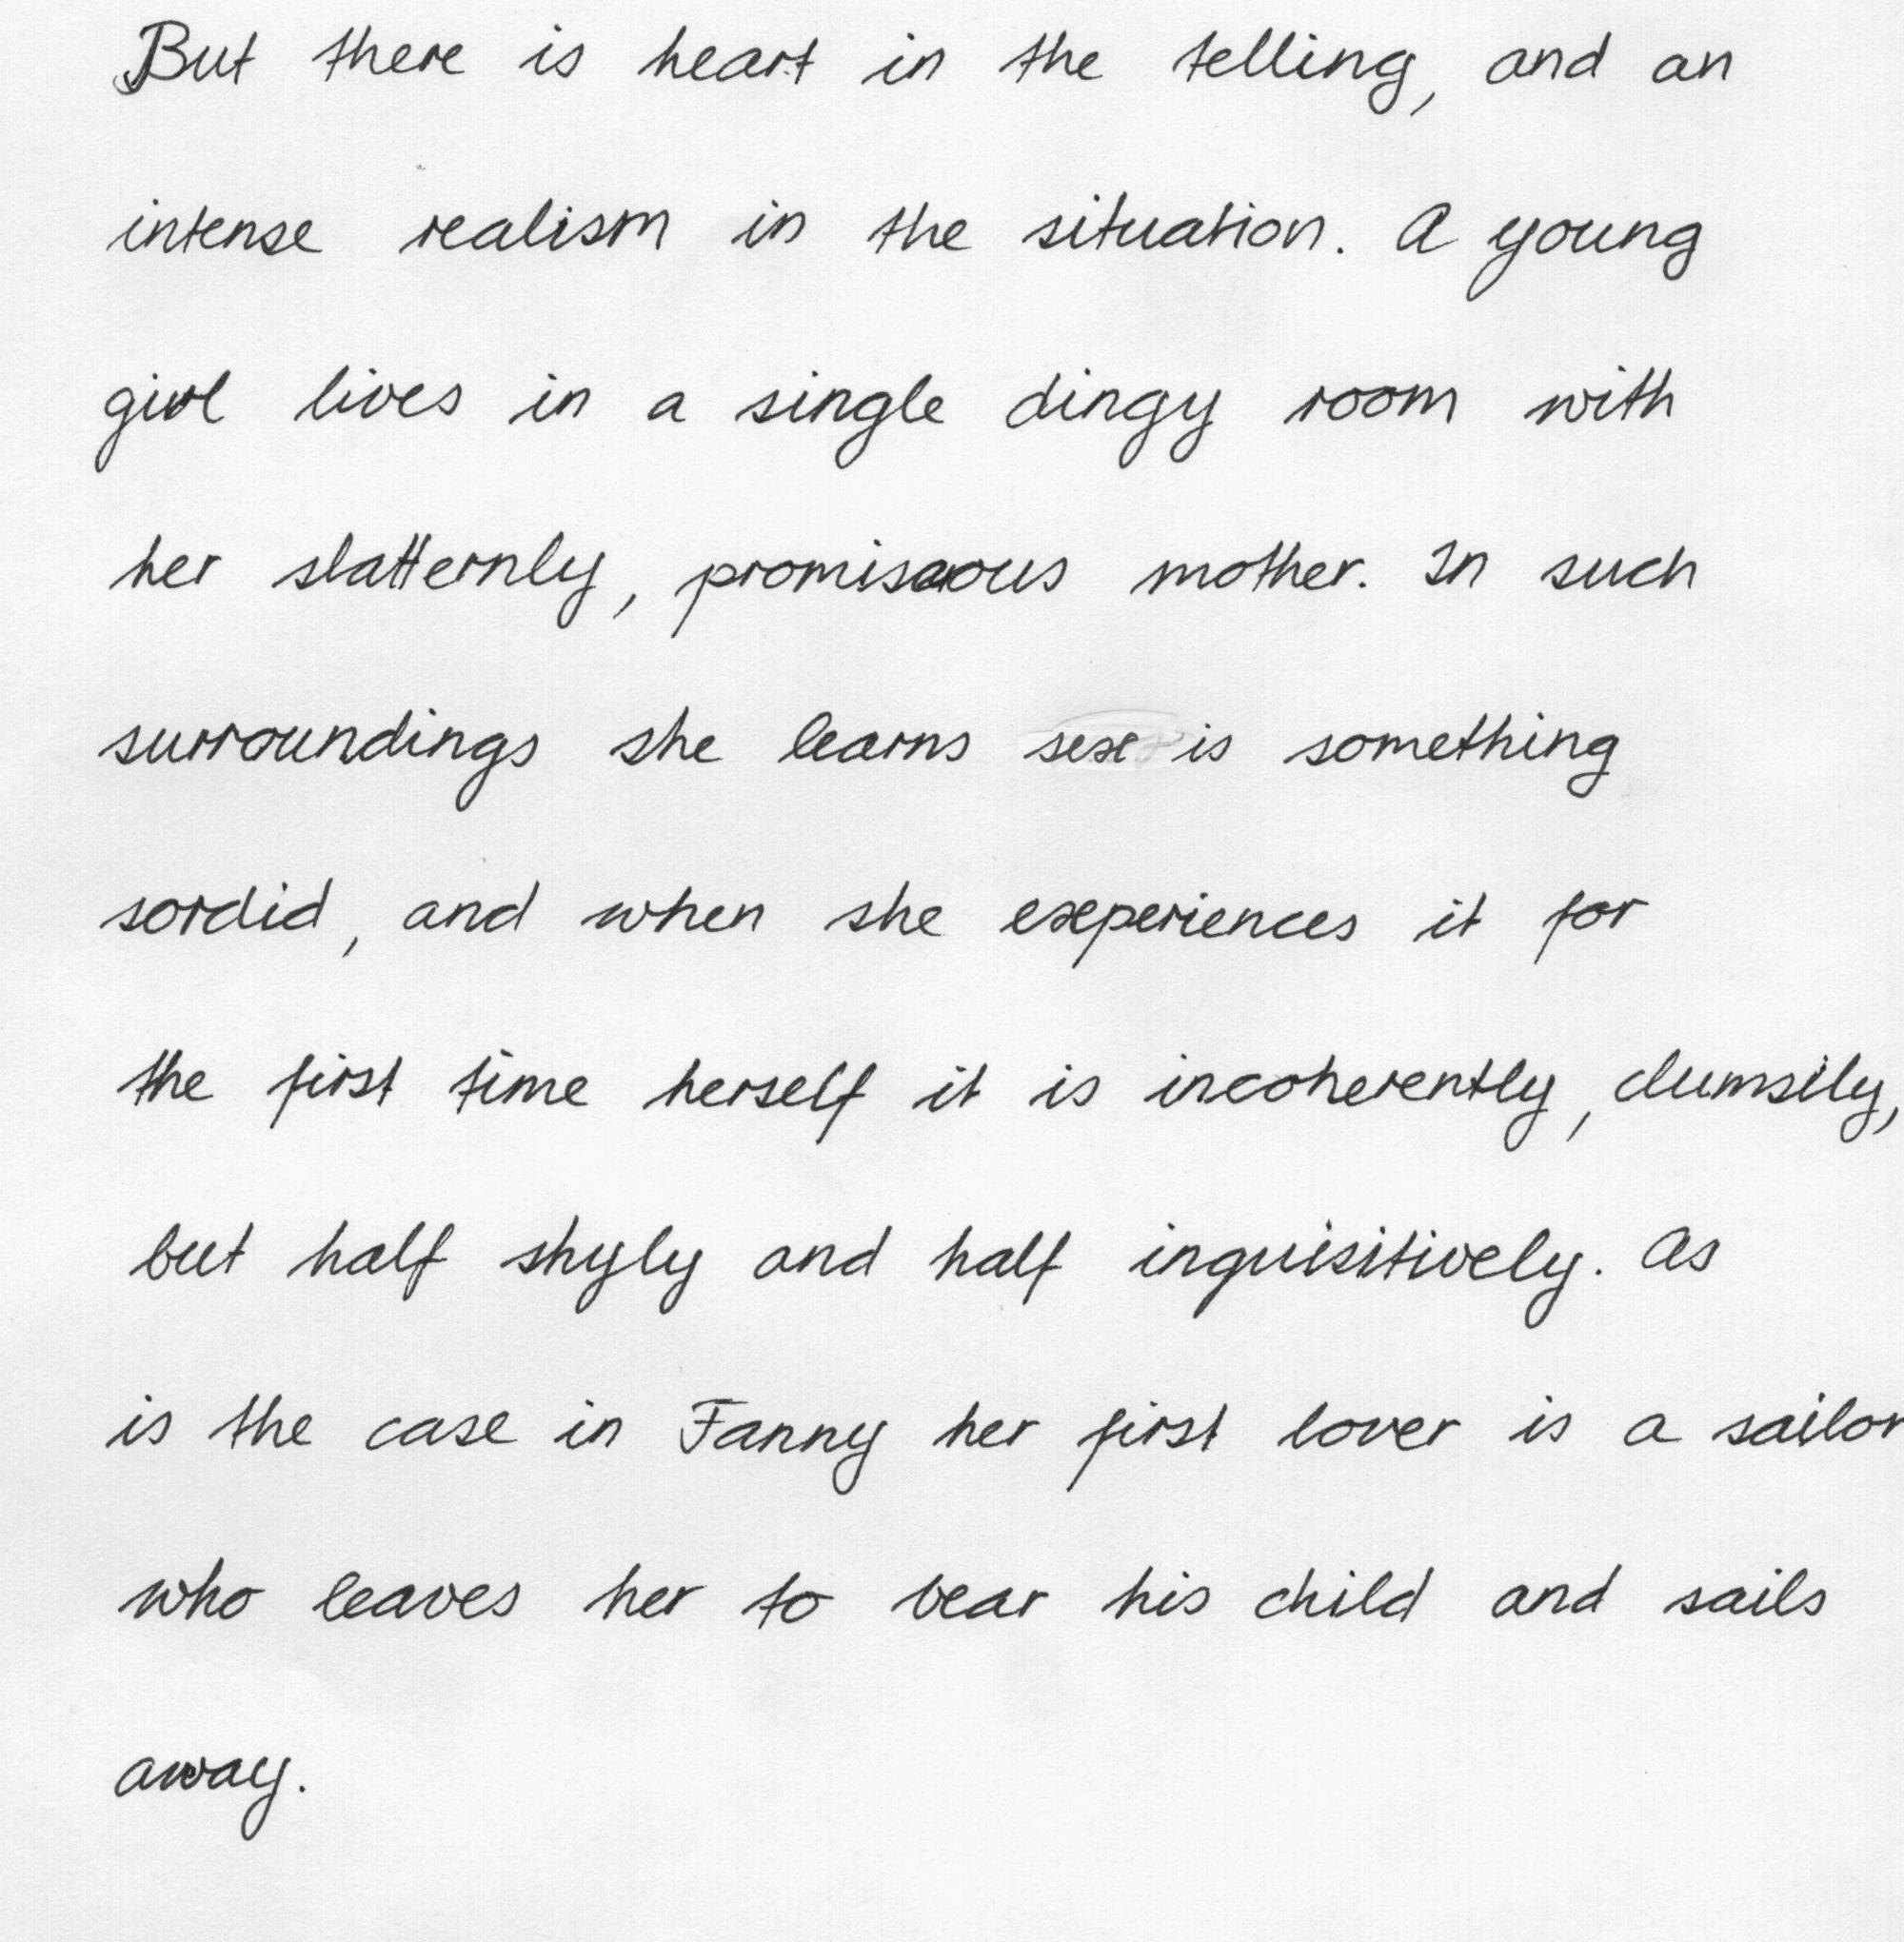 But there is heart in the telling, and an
intense realism in the situation. A young
girl lives in a single dingy room with
her slatternly, promiscuous mother. In such
surroundings she learns sex is something
sordid, and when she experiences it for
the first time herself it is incoherently, clumsily,
but half shyly and half inquisitively. As
is the case in Fanny her first lover is a sailor
who leaves her to bear his child and sails
away.